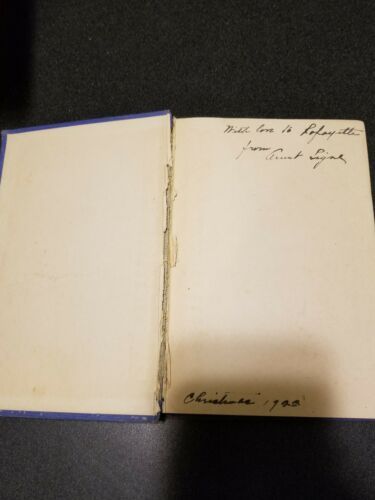 With love to Lafayette
from Aunt Signe
Christmas